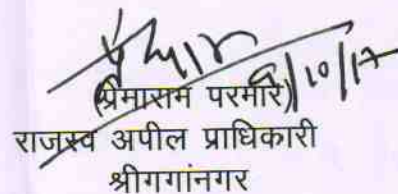 /10/17
(प्रेमाराम परमार)
राजस्व अपील प्राधिकारी
श्रीगगांनगर